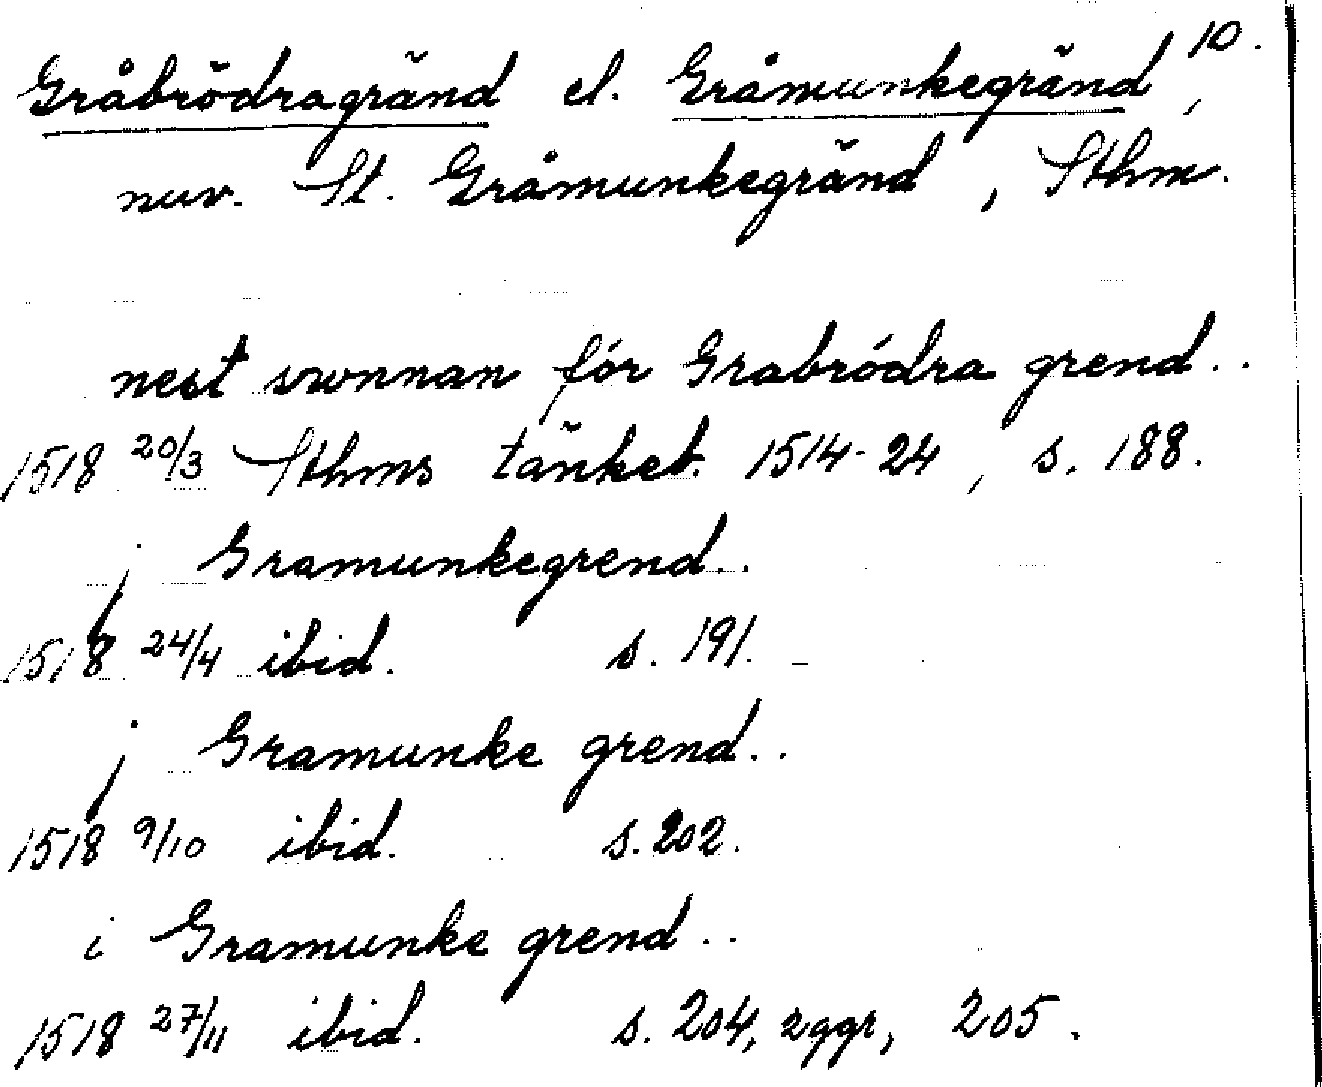 Gråbrödragränd el. Gråmunkegränd, 10.
nuv. St. Gråmunkegränd, Sthm.
nest swnnan för Grabródra grend..
1518 20/3 Sthms tänkeb. 1514-24, s. 188.
j Gramunkegrend..
1518 24/4 ibid. s. 191.
j Gramunke grend..
1518 9/10 ibid. s. 202.
i Gramunke grend..
1518 27/11 ibid. s. 204, 2ggr, 205.